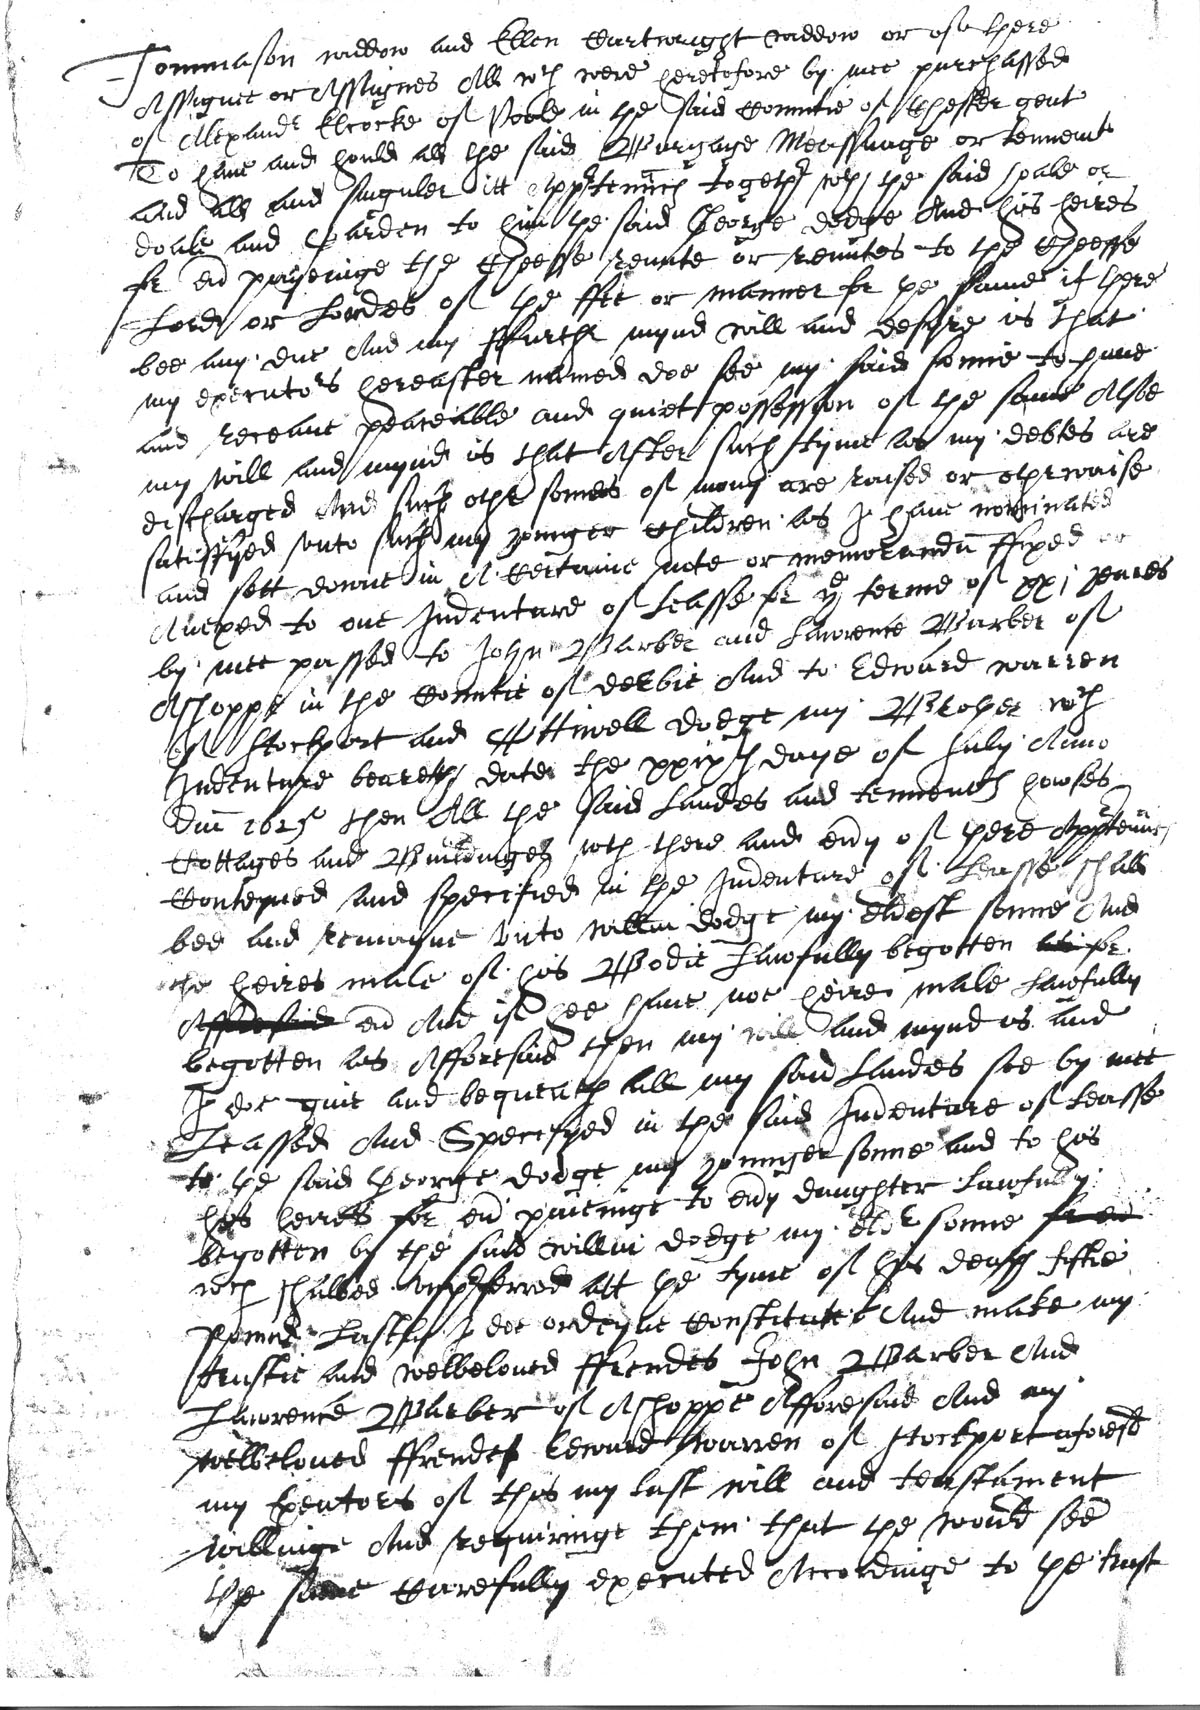 Tommason widdow and Ellen Cartwright widdow or of there
Assignee or Assignes All wch were heretofore by mee purchassed
of Alexandr Elcocke of Poole in the said Countie of Chester gent
To have and hould all the said Burgage Meassuage or tennemt
and all and singuler itt Apprtennces togethr wth the said or
doale and Garden to him the said George dodge And his heires
for evr payeinge the Cheeffe rennte or renntes to the Cheeffe
Lord or Lordes of the ffee or manner for the same if there
bee any due And my ffurthr mynd will and desyre is that
my executors hereafter named doe see my said sonne to have
and receave peaceable and quiet possession of the same Alsoe
my will and mynd is that After such tyme as my debtes are
discharged And such othr somes of mony are raised or otherwaise
satisfyed unto such my younger Children as I have nominated
and sett downe in A Certaine note or memorandu ffixed or
Anexed to one Indenture of Leasse for ye terme of xxj yeares
by mee passed to John Barber and Lawrence Barber of
Ashoppe in the Countie of derbie And to Edward warren
of Stockport and Ottiwell dodge my Brother wch
Indenture beareth date the xxixth daye of July Anno
dni 1625 then All the said Landes and tennements howses
Cottages and Buildinges wth there and evry of there Apprtennces
Conteyned and specified in the Indenture of Leasse shall
bee and remayne unto willm dodge my eldest sonne And
the heires male of his Bodie Lawfully begotten as for
Afforesaid evr And if hee have noe heire male Lawfully
begotten as Afforesaid then my will and mynd is and
I doe give and bequeath all my said Landes soe by mee
Leassed And Specifyed in the said Indenture of Leasse
to the said George dodge my younger sonne and to his
his heires for evr paieinge to evry daughter Lawfully
begotten by the said willm dodge my eldr sonne for evr
wch shalbee unprferred att the tyme of his death fiftie
Pownd Lastly I doe ordeyne Constitute And make my
trustie and welbeloved ffrendes John Barber And
Lawrence Barber of Ashoppe Afforesaid And my
welbeloved ffrendes Edward Warren of Stockport aforesd
my Exeators of this my last will and teastament
willinge And requiringe them that the would see
the same Carefully executed Accordinge to the trust